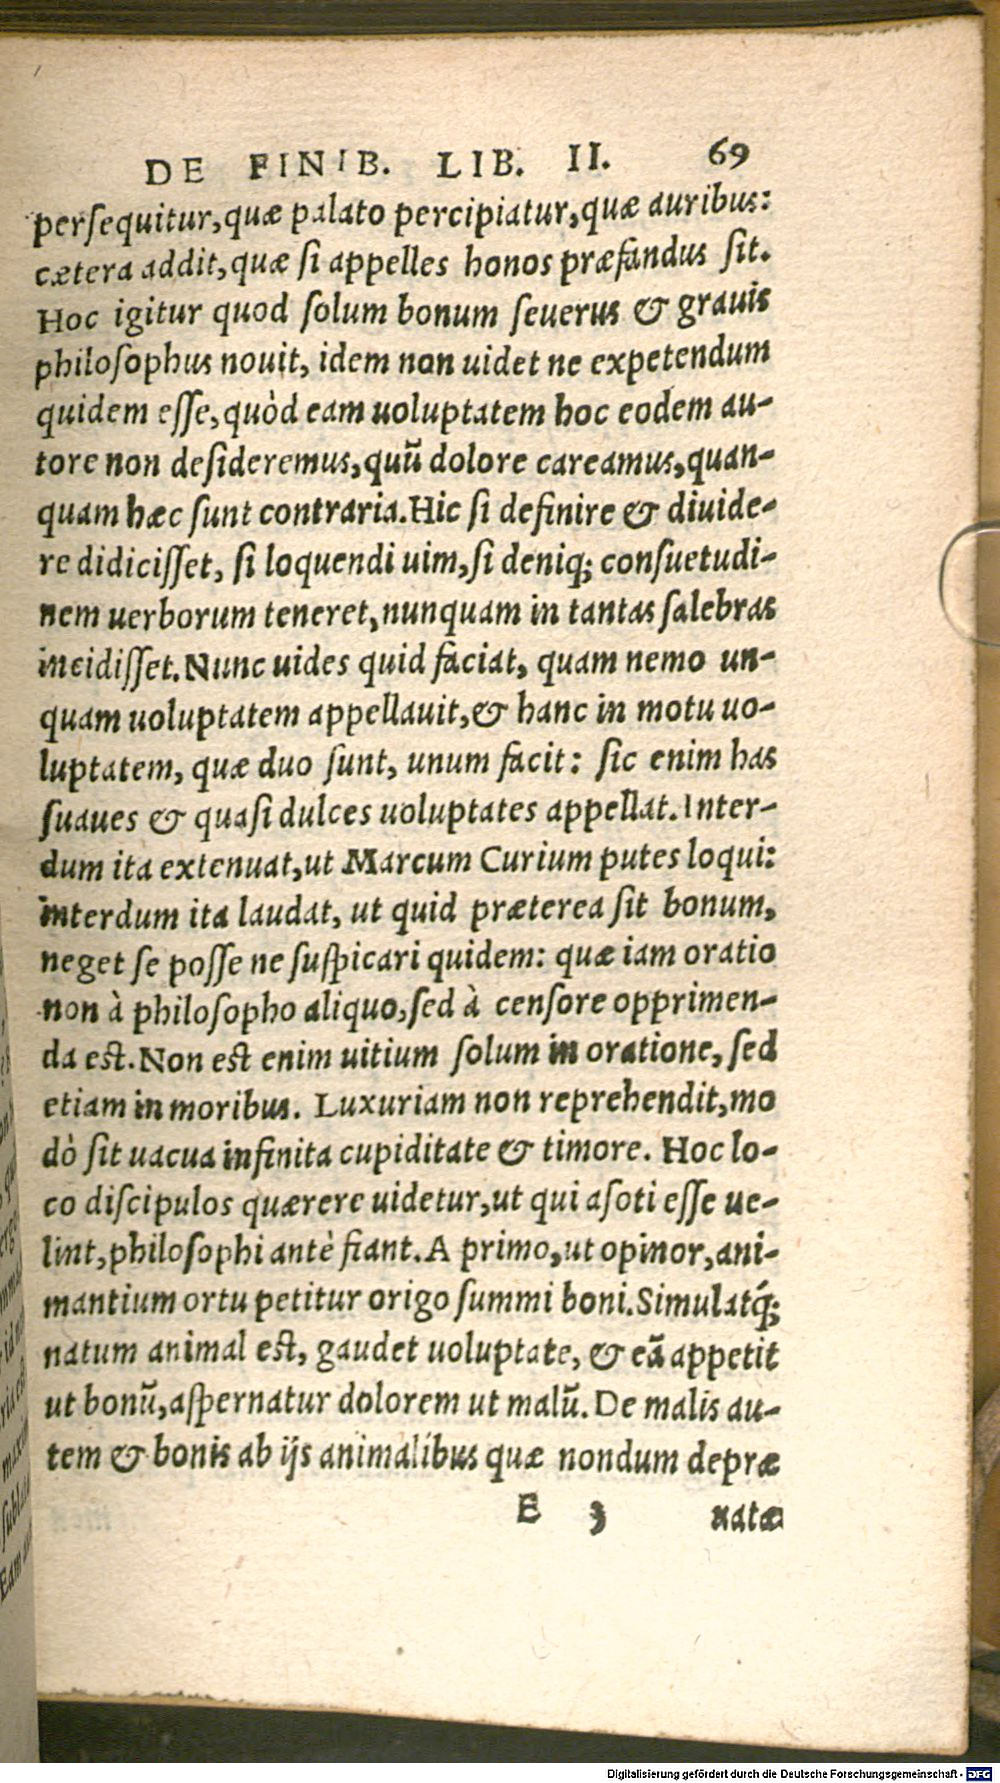 DE FINIB. LIB. II. 69
persequitur,quæ palato percipiatur,quæ auribus:
cætera addit,quæ si appelles honos præfandus sit.
Hoc igitur quod solum bonum seuerus & grauis
philosophus nouit, idem non uidet ne expetendum
quidem esse,quòd eam uoluptatem hoc eodem au-
tore non desideremus,quũ dolore careamus,quan-
quam hæc sunt contraria.Hic si definire & diuide-
re didicisset, si loquendi uim,si deniq; consuetudi-
nem uerborum teneret,nunquam in tantas salebras
incidisset.Nunc uides quid faciat, quam nemo un-
quam uoluptatem appellauit,& hanc in motu uo-
luptatem, quæ duo sunt, unum facit: sic enim has
suaues & quasi dulces uoluptates appellat.Inter-
dum ita extenuat,ut Marcum Curium putes loqui:
interdum ita laudat, ut quid præterea sit bonum,
neget se posse ne suspicari quidem: quæ iam oratio
non à philosopho aliquo,sed à censore opprimen-
da est.Non est enim uitium solum in oratione, sed
etiam in moribus. Luxuriam non reprehendit,mo
dò sit uacua infinita cupiditate & timore. Hoc lo-
co discipulos quærere uidetur,ut qui asoti esse ue-
lint,philosophi antè fiant.A primo,ut opinor,ani-
mantium ortu petitur origo summi boni.Simulatq́;
natum animal est, gaudet uoluptate, & eã appetit
ut bonũ,aspernatur dolorem ut malũ.De malis au-
tem & bonis ab ijs animalibus quæ nondum depræ
E 3 uatæ
Digitalisierung gefördert durch die Deutsche Forschungsgemeinschaft - DFG